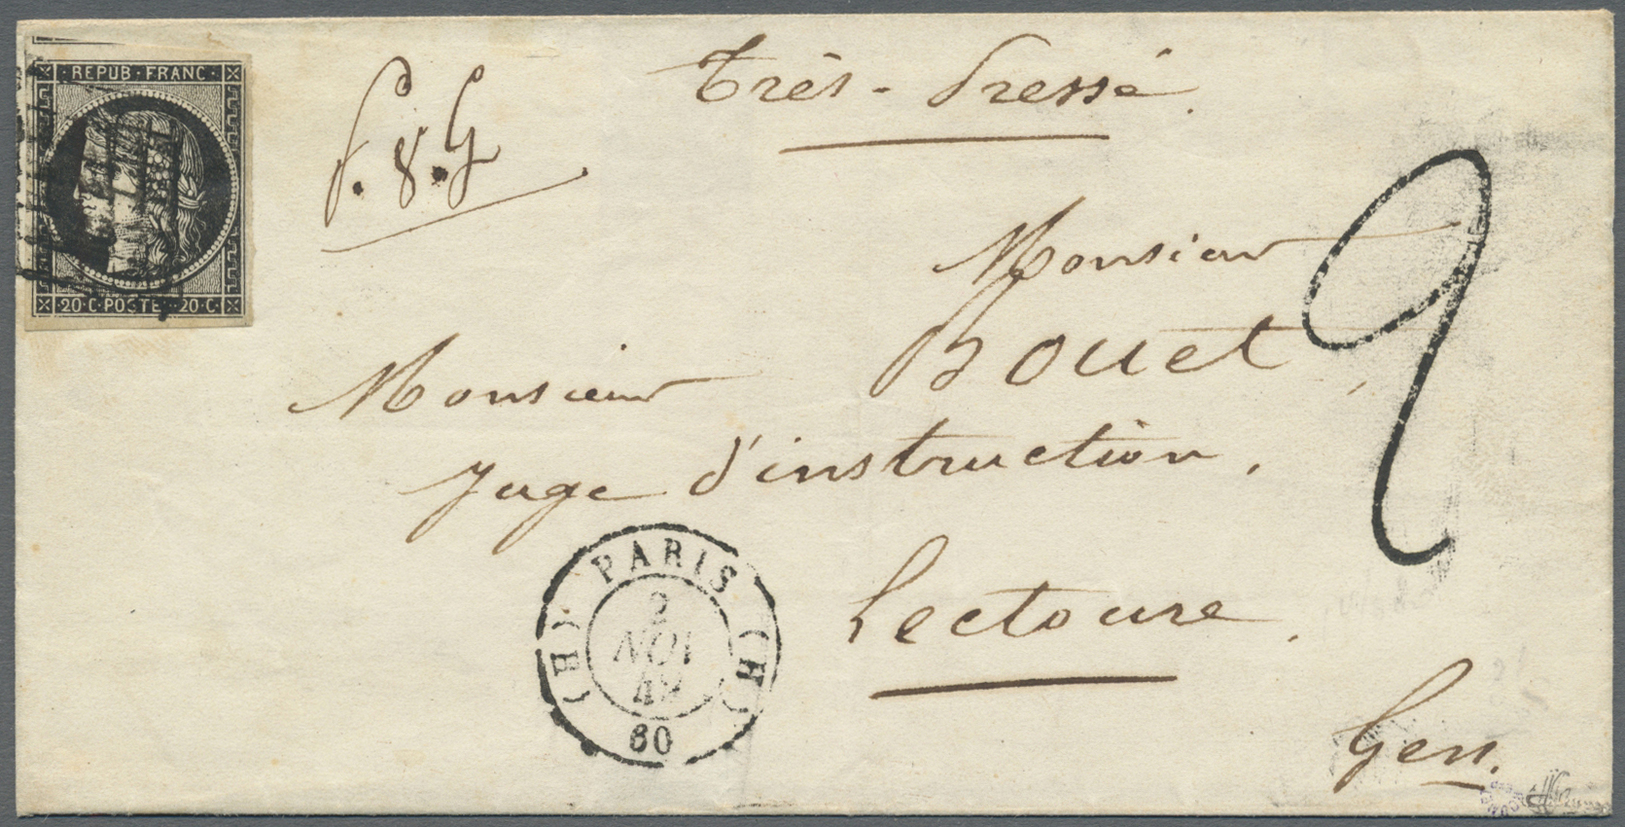 REPUB · FRANC ·
20 · C · POSTE · 20 · C ·
Très-Pressé.
Monsieur
Bouet,
Monsieur
Juge d'instruction,
Lectoure.
Gers.
2
PARIS
(H) (H)
2
NOV
49
60